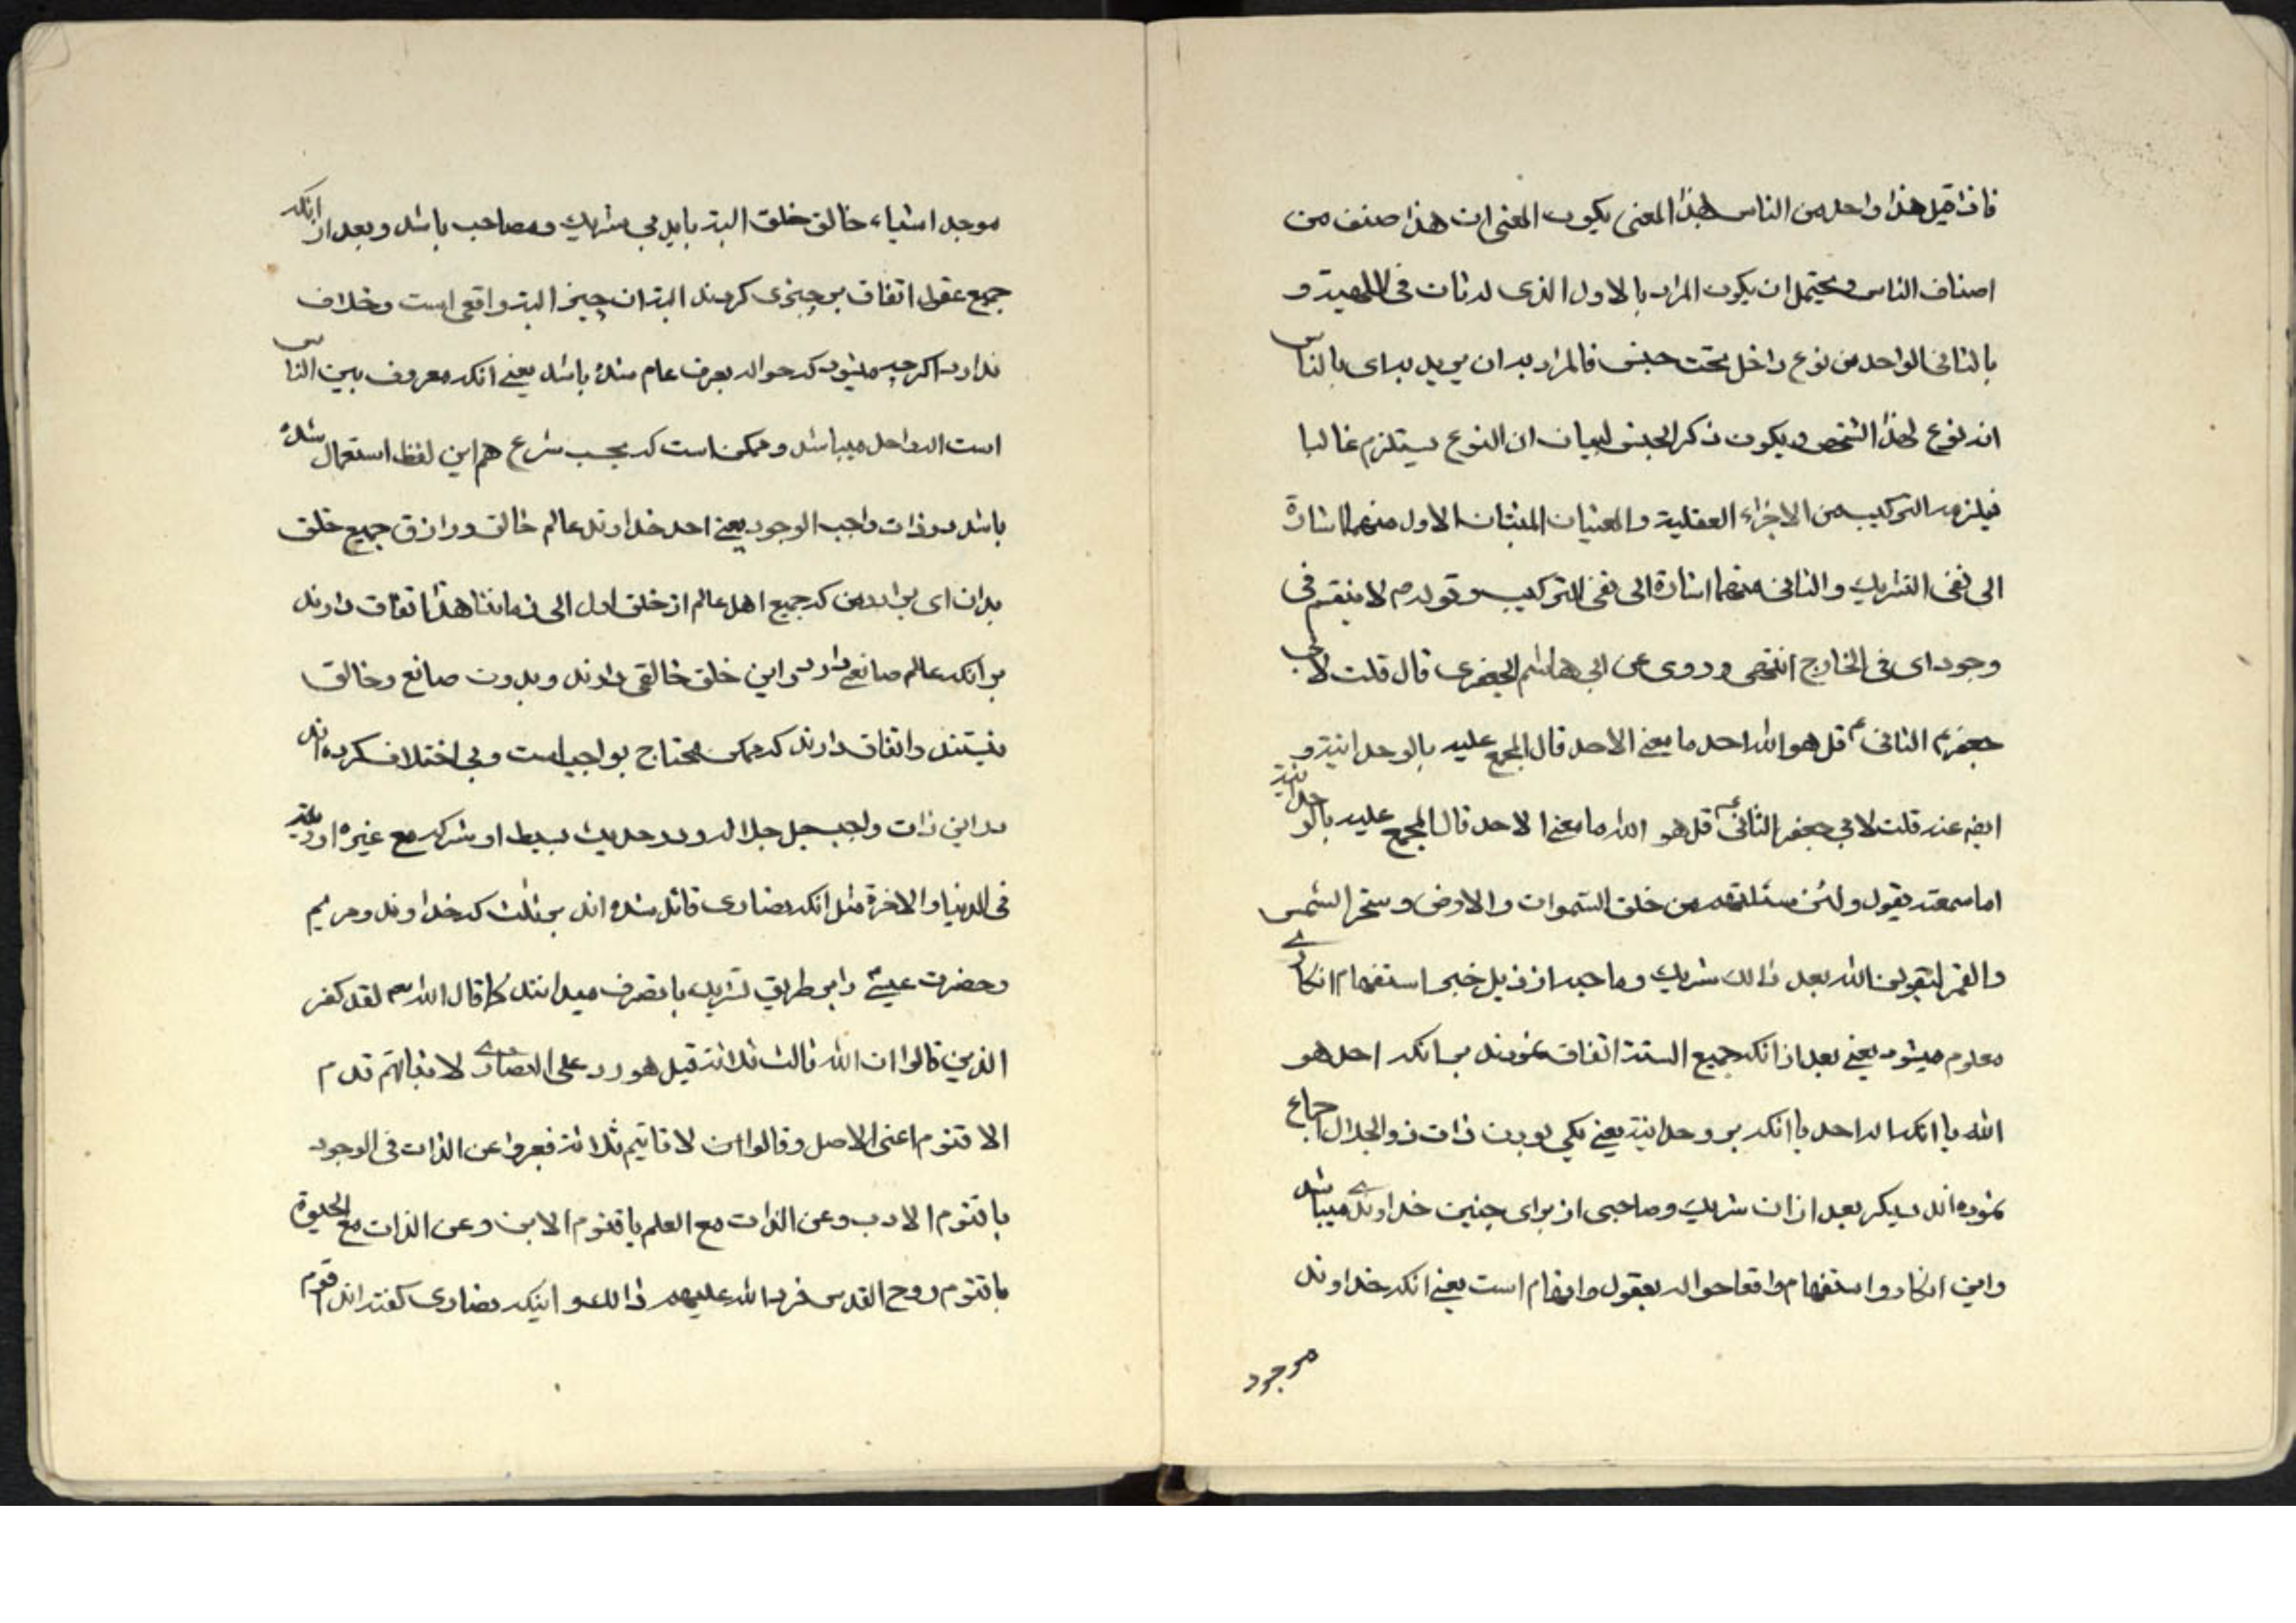 فاذا قیل هذا واحد من الناس بهذا المعنی یکون المعنی ان هذا صنف من
اصناف الناس و یحتمل ان یکون المراد بالاول الذی لا ثان فی الالهیة و
بالثانی الواحد من نوع داخل تحت جنس فالمراد به ان یرید به ای بالناس
انه نوع لهذا الشخص و یکون ذکر الجنس لبیان ان النوع یستلزم غالبا
فیلزم التركیب من الاجزاء العقلیة و المعنیان المثبتان الاول منهما اشارة
الی نفی الشریك و الثانی منهما اشارة الی نفی الترکیب و قوله م لا ینقسم فی
وجود ای فی الخارج انتهی و روی عن ابی هاشم الجعفری قال قلت لابی
جعفر الثانی ع قل هو الله احد ما معنی الاحد قال المجمع علیه بالوحدانیة و
ایضه عنه قلت لابی جعفر الثانی ع قل هو الله ما معنی الاحد قال المجمع علیه بالوحدانیة
اما سمعته یقول و لئن سئلتهم من خلق السموات و الارض و سخر الشمس
و القمر لیقولن الله بعد ذالك شریك و صاحبه از ذیل خبر استفهام انکاری
معلوم میشود یعنی بعد از انکه جمیع السنة اتفاق نمودند بر انکه احد هو
الله یا انکه الواحد یا انکه بر وحدانیة یعنی یکی بودن ذات ذوالجلال اجماع
نموده اند دیکر بعد از ان شریك و صاحبی از برای چنین خداوندی میباشد
و این انکار و استفهام واقعا حواله بعقول و افهام است یعنی انکه خداوند
موجود
موجد اشیاء خالق خلق البته باید بی شریك و مصاحب باشد و بعد از انکه
جمیع عقول اتفاق بر چیزی کردند البته ان چیز البته واقعی است و خلاف
ندارد اکر چه میشود که حواله بعرف عام شده باشد یعنی انکه معروف بین الناس
است الواحد میباشد و ممکن است که بحسب شرع هم این لفظ استعمال شده
باشد در ذات واجب الوجود یعنی احد خداوند عالم خالق و رازق جمیع خلق
بدان ای برادر من که جمیع اهل عالم از خلق اول الی زماننا هذا اتفاق دارند
بر انکه عالم صانعی دارد و این خلق خالقی دارند و بدون صانع و خالق
نیستند و اتفاق دارند که ممکن محتاج بواجب است ولی اختلاف کرده اند
در این ذات واجب جل جلاله و در حدیث بسیط او شرکه مع غیره او رؤیته
فی الدنیا و الاخرة مثل انکه نصاری قائل شده اند بر ثلث که خداوند و مریم
و حضرت عیسی را بر طریق شریك با تصرف میدانند کما قال الله تعم لقد کفر
الذین قالوا ان الله ثالث ثلاثة قیل هو رد علی النصاری لاثباتهم قدم
الاقنوم اعنی الاصل و قالوا ان الاقانیم ثلاثة فعبروا عن الذات فی الوجود
باقنوم الاب و عن الذات مع العلم باقنوم الابن و عن الذات مع الحیوة
باقنوم روح القدس فرد الله علیهم ذالك و اینکه نصاری کفته اند اقنوم